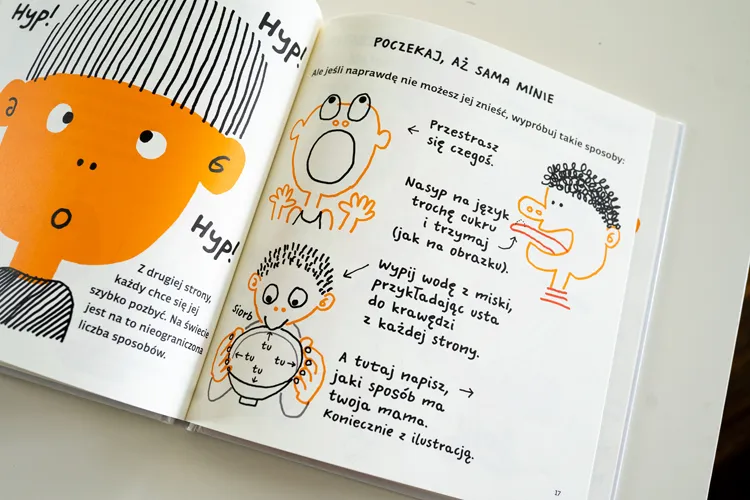 Hyp!
Hyp!
Hyp!
Z drugiej strony,
każdy chce się jej
szybko pozbyć. Na świecie
jest na to nieograniczona
liczba sposobów.
POCZEKAJ, AŻ SAMA MINIE
Ale jeśli naprawdę nie możesz jej znieść, wypróbuj takie sposoby:
← Przestrasz
się czegoś.
Nasyp na język
trochę cukru
i trzymaj
(jak na obrazku).
Wypij wodę z miski,
przykładając usta
do krawędzi
z każdej strony.
Siorb
tu
tu
tu
tu
A tutaj napisz, →
jaki sposób ma
twoja mama.
Koniecznie z ilustracją.
17